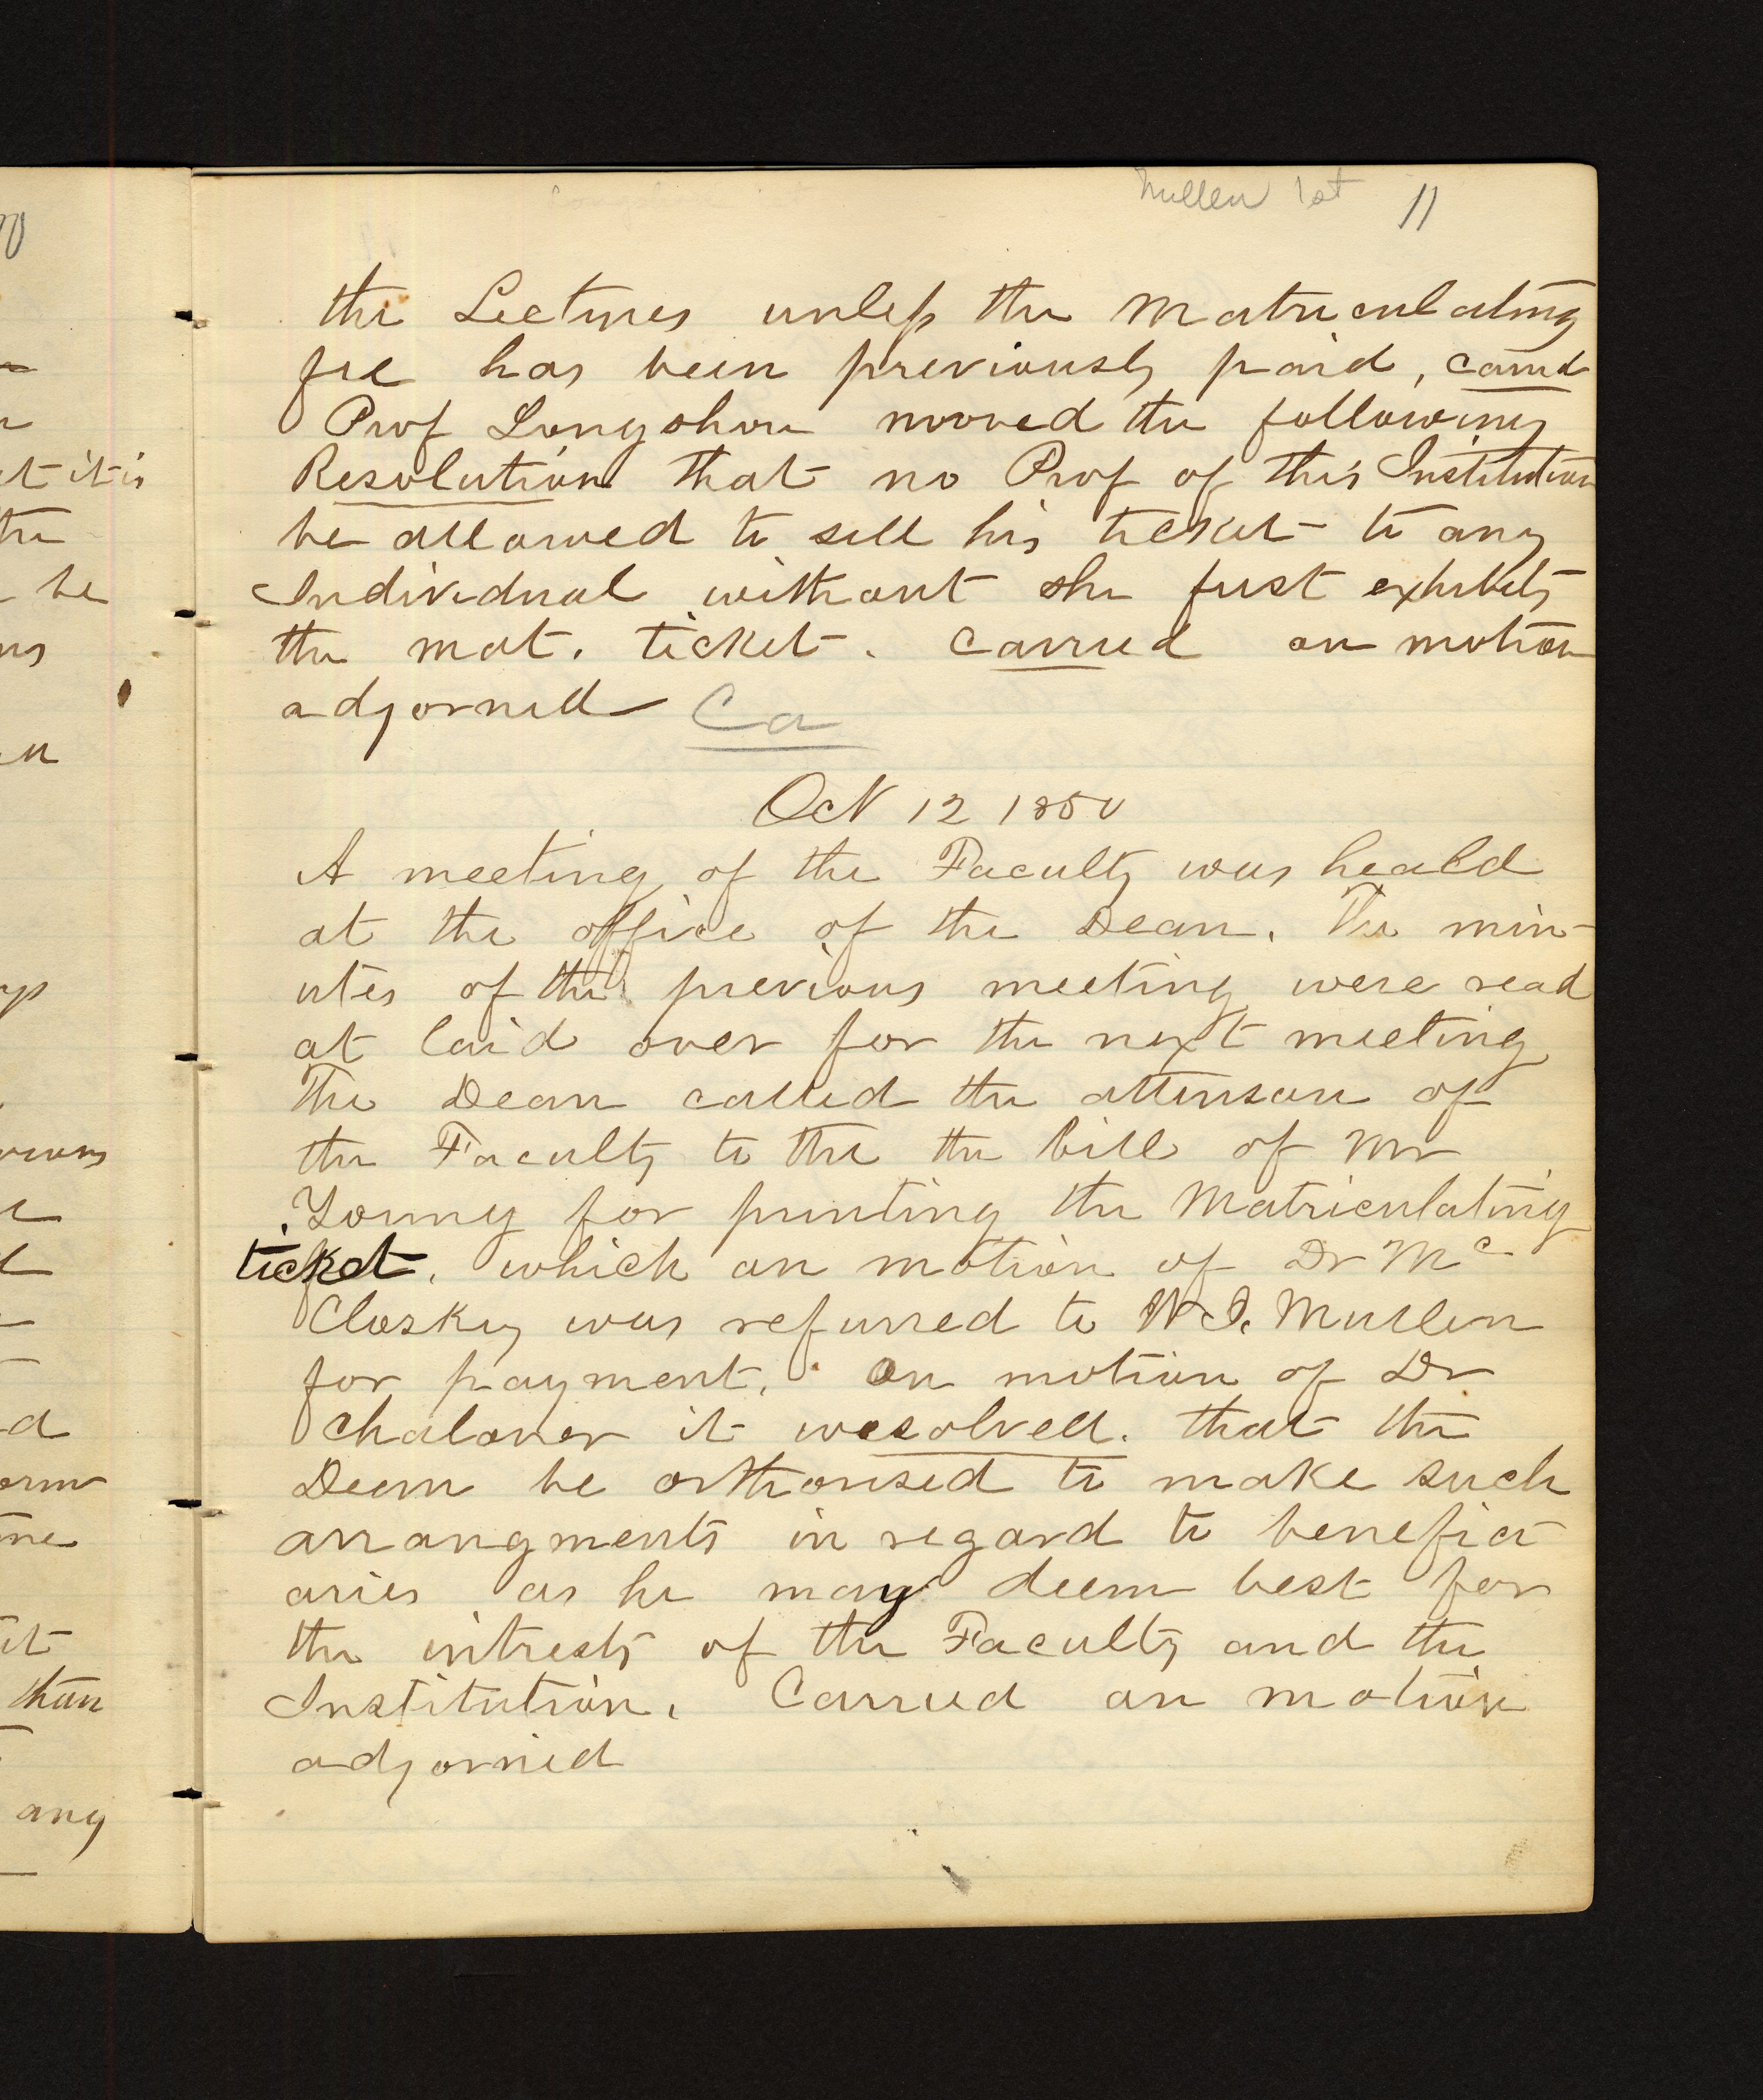 Mullen 1st 11
the Lectures unless the Matriculating
fee has been previously paid, carrid
Prof Longshore moved the following
Resolution that no Prof of this Institution
be allowed to sell his ticket to any
Individual without she first exhibits
the mat. ticket. Carried on motion
adjorned Ca
Oct 12 1850
A meeting of the Faculty was heald
at the office of the Dean. The min-
utes of the previous meeting were read
at laid over for the next meeting
The Dean called the attension of
the Faculty to the the bill of Mr
Young for printing the Matriculating
ticket, which on motion of Dr Mc
Closkey was referred to W. J. Mullen
for payment. On motion of Dr
Chaloner it wesolved. that the
Deem be orthorised to make such
arrangments in regard to benefici
aries as he may deem best for
the intrests of the Faculty and the
Institution. Carried on motion
adjorned
10
et it is
the
be
than
any